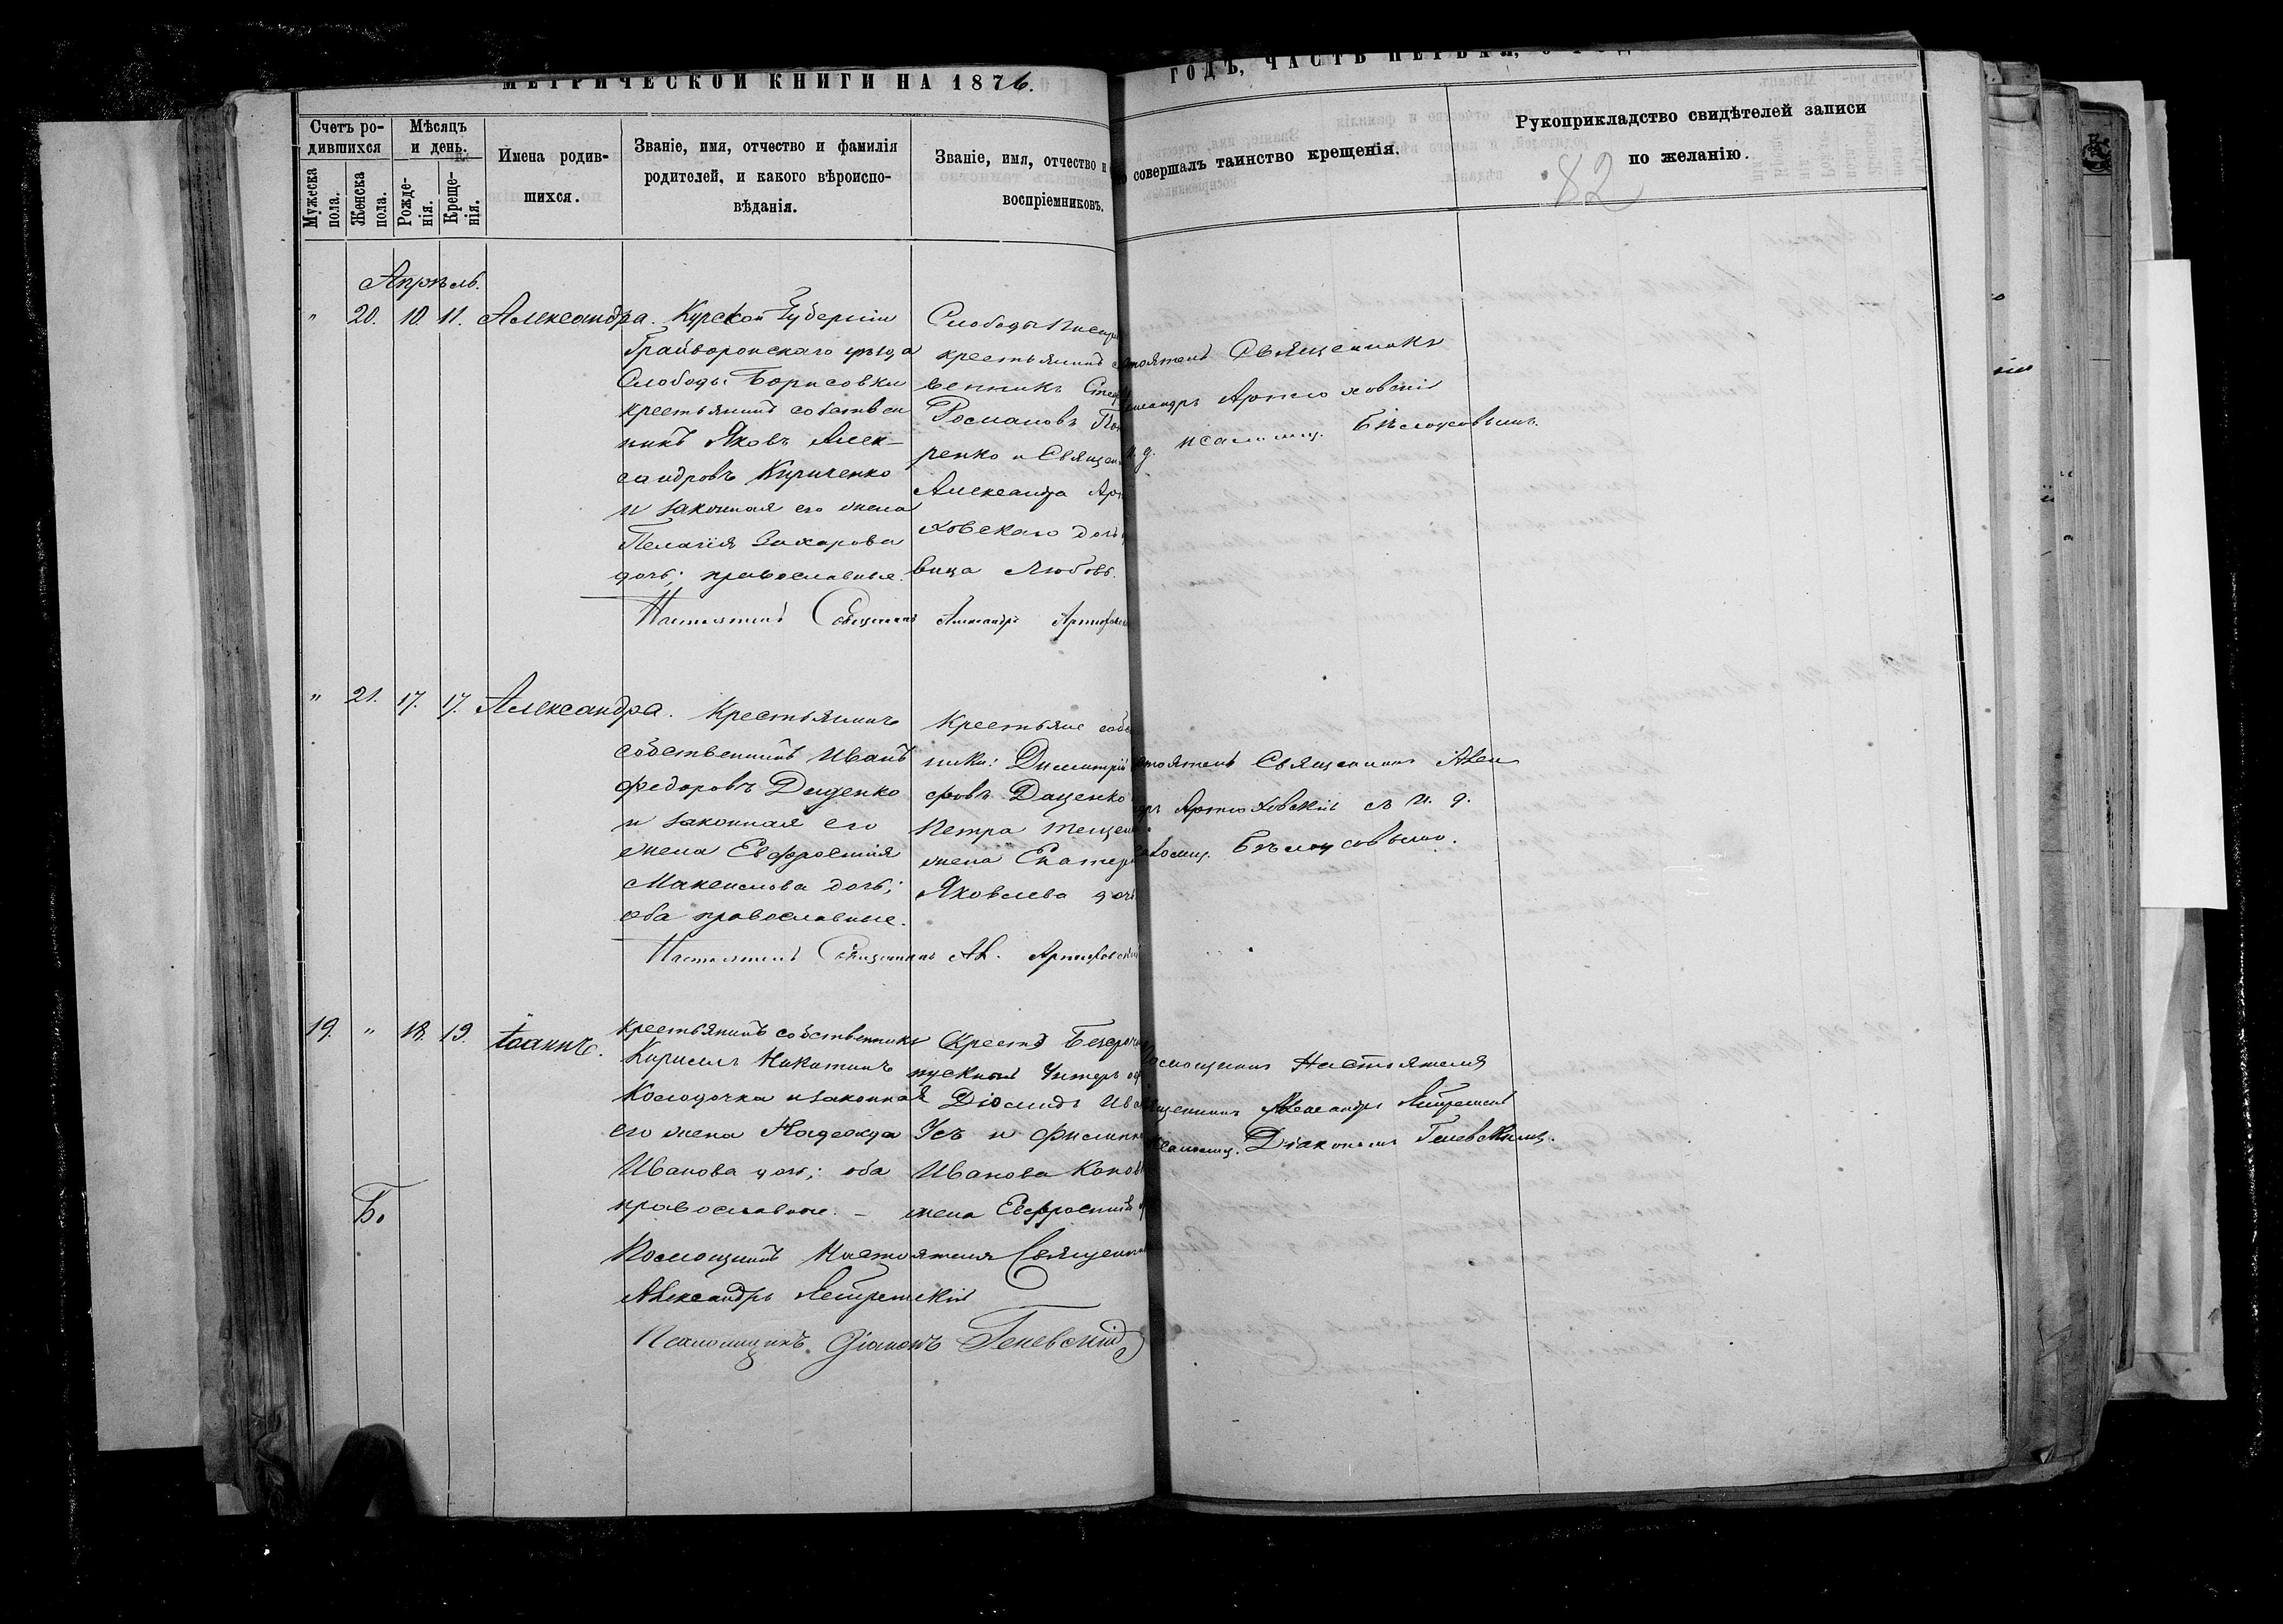 МЕТРИЧЕСКОЙ КНИГИ НА 1876.
ГОДЪ, ЧАСТЬ ПЕРВАЯ,
Счетъ ро-
дившихся
Мужеска пола.
Женска пола.
Мѣсяцъ
и день.
Рожде-
нія.
Креще-
нія.
Имена родив-
шихся.
Званіе, имя, отчество и фамилія
родителей, и какого вѣроиспо-
вѣданія.
Званіе, имя, отчество и
воспріемниковъ.
совершалъ таинство крещенія.
Рукоприкладство свидѣтелей записи
по желанію.
82
Апрѣль.
" 20. 10. 11. Александра.
Курской Губерніи
Грайворонскаго уѣзда
Слободы Борисовки
крестьянинъ собствен
никъ Яковъ Алек-
сандровъ Кириченко
и законная его жена
Пелагія Захарова
дочь; православные.
Слободы
крестьянинъ
венникъ
Романовъ
ренко и Священ
Александра Ар
ховскаго дочь
вица Любовь.
Священникъ
Артюховскій
и. д. псаломщ. Бѣлоусовымъ.
Настоятель Священникъ Александръ Артюховск
" 21. 17. 17. Александра.
Крестьянинъ
собственникъ Иванъ
Федоровъ Диденко
и законная его
жена Евфросинія
Максимова дочь;
оба православные.
Крестьяне собс
ники: Димитрій
ровъ Даценко
Петра
жена Екатер
Яковлева доч
стоятель Священникъ Алек
дръ Артюховскій съ и. д.
Бѣлоусовымъ.
Настоятель Священникъ Ал. Артюховскій
19. " 18. 19. Іоаннъ.
крестьянинъ собственникъ
Кирилъ Никитинъ
Колодочка и законная
его жена Надежда
Иванова дочь; оба
православные. –
Безсроч
пускной Унтеръ оф
Діомидъ Ива
Усъ и Филип
Иванова
жена Евфросинія
Помощникъ Настоятеля
щенникъ Александръ
псаломщ. Діакономъ Геневскимъ.
Б.
Помощникъ Настоятеля Священник
Александръ
Псаломщикъ Діаконъ Геневскій